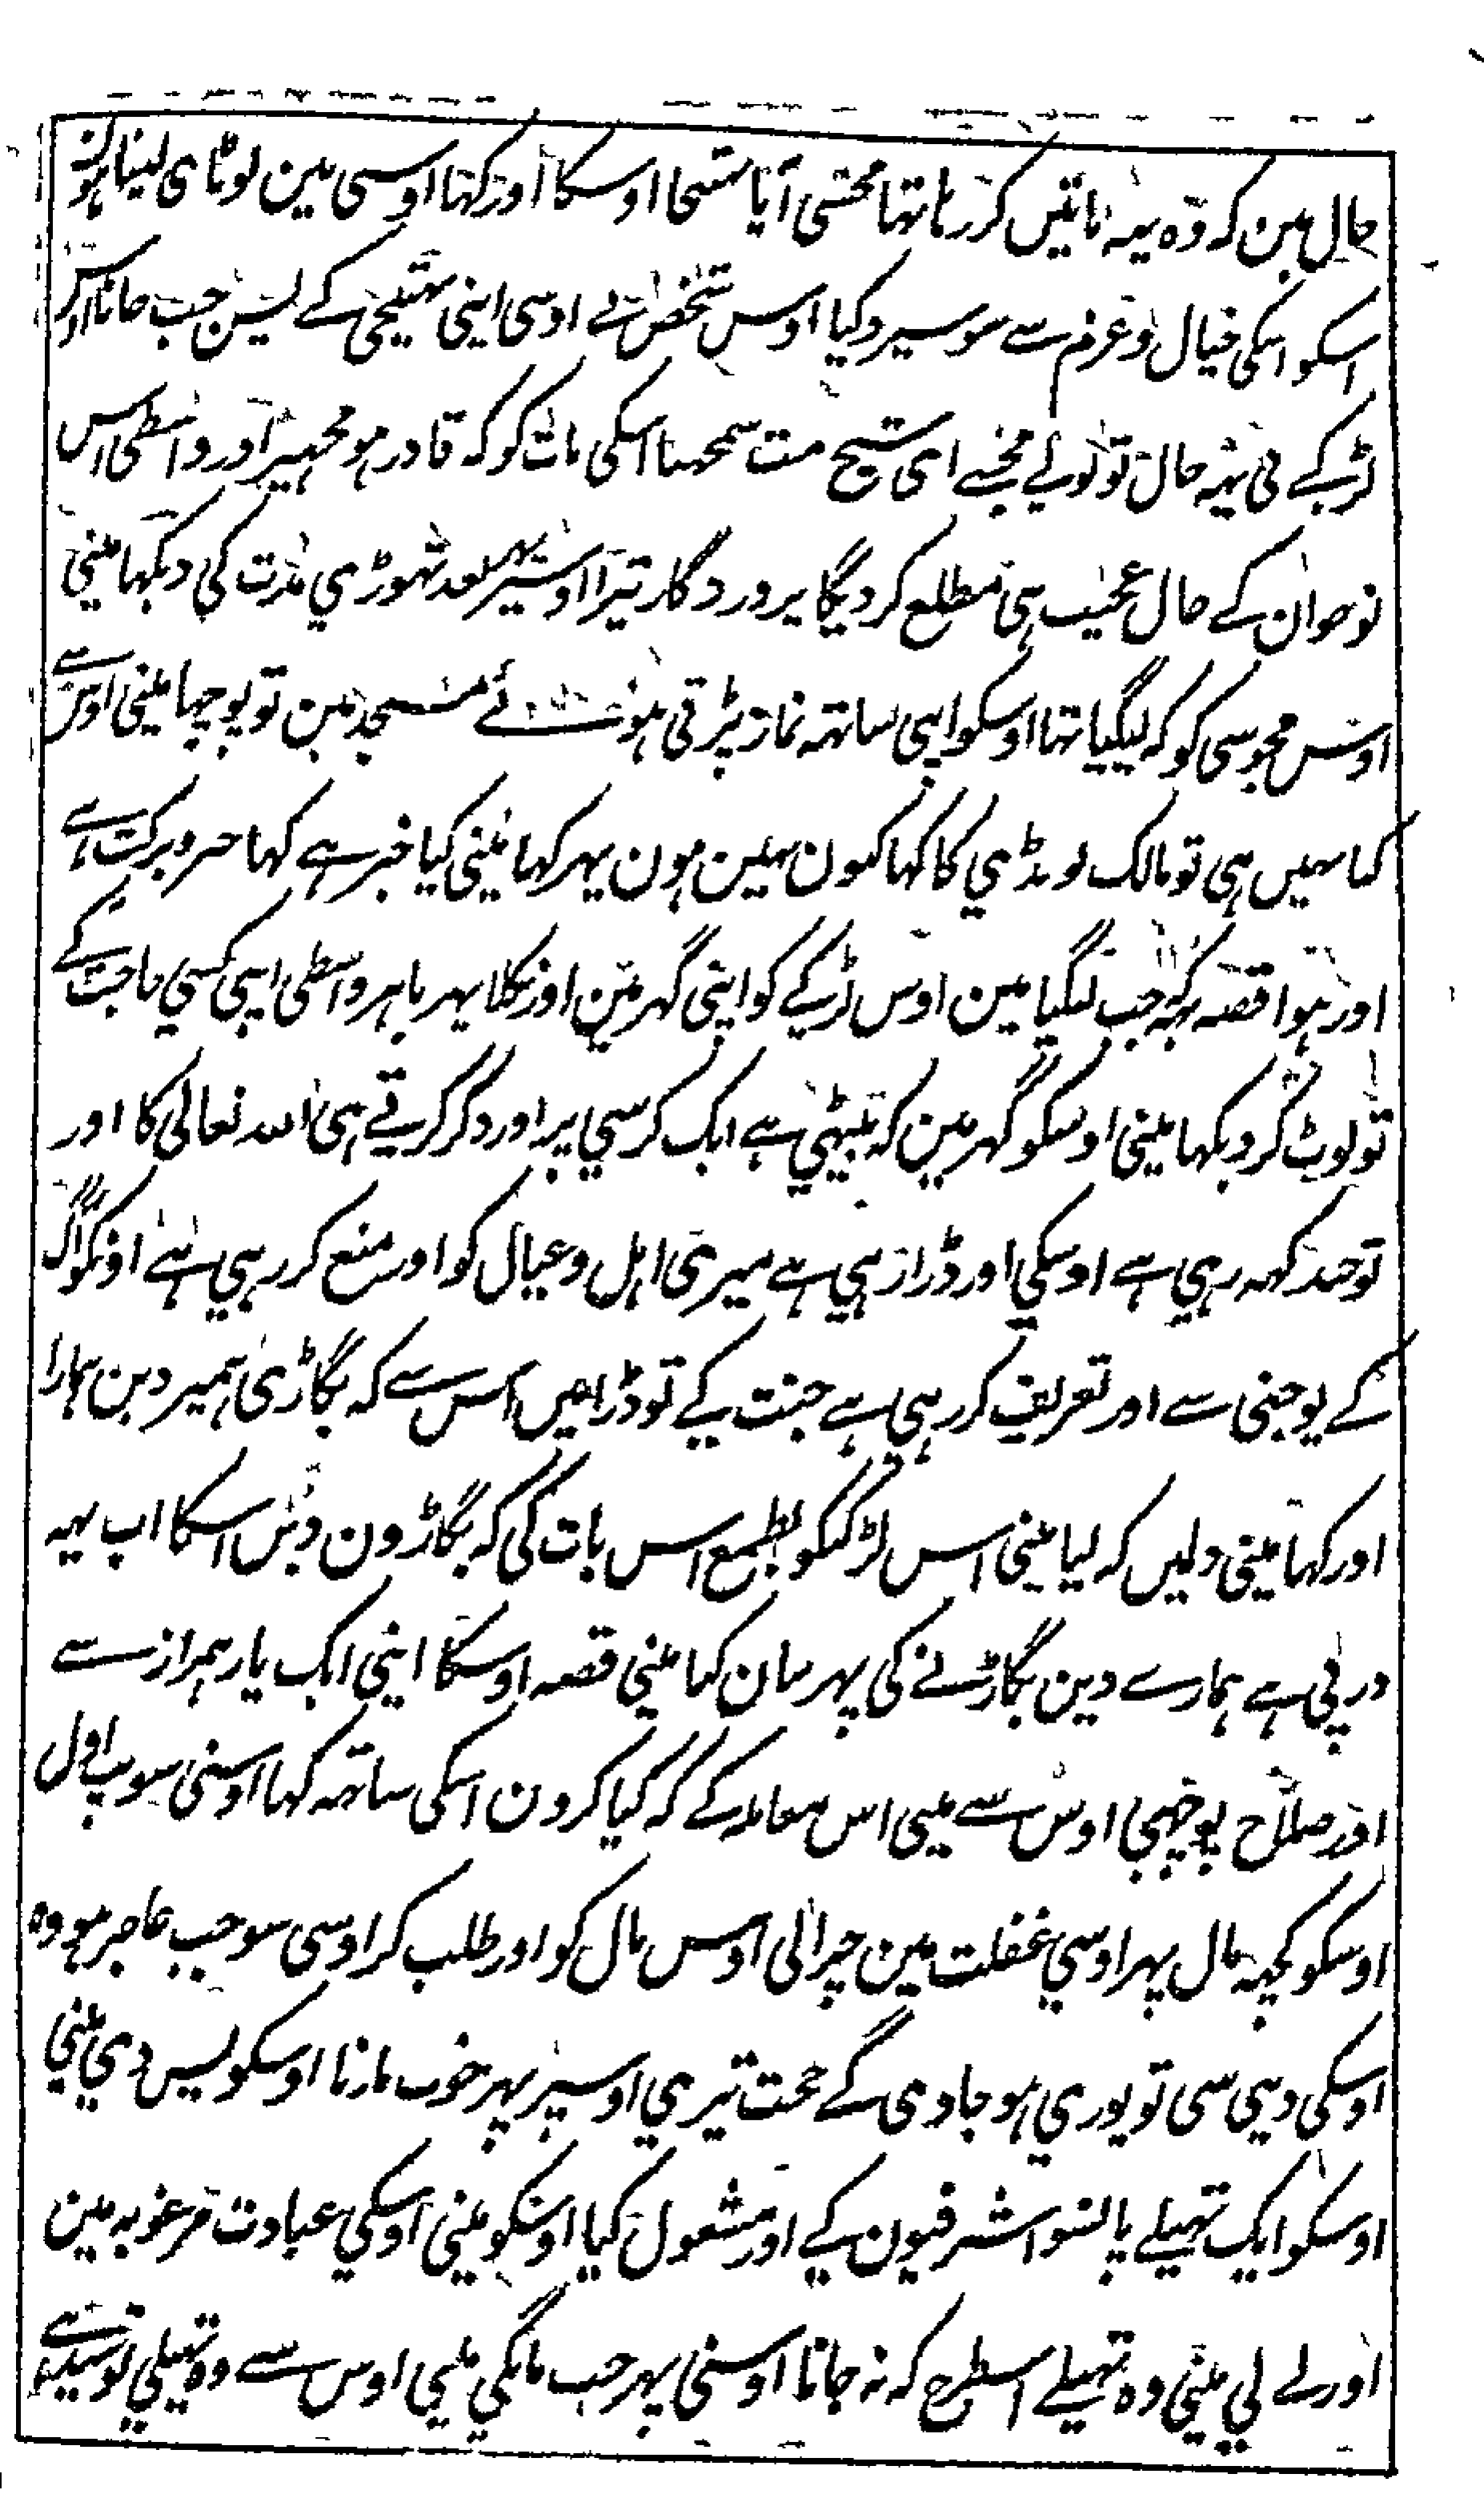 حال مین کہ وہ یہہ باتیں کر رہا تہا مجہسی آیا چچا اوسکا اور کہا اوسی مین لونڈی لینا ہون
اسکو اسکی خیال و عزم سے سو سپرد کیا اوس شخص نے اوسی اپنی بہتیجی کے پس جب جانا اوس
لڑکے نی یہہ حال تو بولے مجہے ای شیخ مت سمجہنا اسکی بات کو کہ قادر ہو مجہپر اور واسطی اس
نوجوان کے حال عجیب ہی مطلع کر دیگا پروردگار تیرا اوسپر بعد تہوڑی مدت کی دیکہا مینی
اوس مجوسی کو کہ لیگیا تہا اوسکو اپنی ساتہہ نماز پڑہتی ہوئے مسجد مین تو پوچہا مینی اوس سے
کیا نہیں ہی تو مالک لونڈی کا کہا کیون نہین ہون پہر کہا مینی کیا خبر ہے کہا خیر و برکت ہے
اور ہوا قصہ یہہ کہ جب لیگیا مین اوس لڑکے کو اپنی گہر مین اور نکلا پہر باہر واسطی اپنی کسی حاجت کے
تو لوٹ کر دیکہا مینی اوسکو گہر مین کہ بیٹہی ہے ایک کرسی پر اور ذکر کرتے ہی اللہ تعالی کا اور
توحید کہہ رہی ہے اوسکی اور ڈرا رہی ہے میری اہل و عیال کو اور منع کر رہی ہے اونکو آگ
کے پوجنی سے اور تعریف کر رہی ہے جنت کے تو ڈرا مین اس سے کہ بگاڑی ہمپر دین ہمارا
اور کہا مینی دلمیں کہ لیا مینی اس لڑکیکو بطمع اس بات کی کہ بگاڑون دین اسکا اب یہہ
درپی ہے ہمارے دین بگاڑنے کی پہر بیان کیا مینی قصہ اوسکا اپنی ایک یار ہمراز سے
اور صلاح پوچہی اوس سے مینی اس معاملہ کے کہ کیا کرون اسکی ساتہہ کہا اوسنی سونپ اول
اوسکو کچہہ مال پہر اوسی غفلت مین چرا لی اوس مال کو اور طلب کر اوسی سو جب عاجز ہو وہ
اوسکی دیی سی تو پوری ہو جاوی گے حجت تیری اوسپر پہر خوب مارنا اوسکو پس دی مینی
اوسکو ایک تہیلے پانسو اشرفیون کے اور مشغول کیا اوسکو مینی اوسکی عبادت مرغوبہ مین
اور لے لی مینی وہ تہیلے اسطرح کہ نہ جانا اوسنی پہر جب مانگی مینی اوس سے وہ تہیلی تو